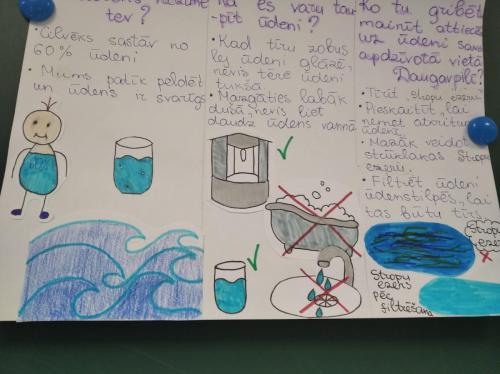 nozīmē
tev?
• Cilvēks sastāv no
60% ūdeni
• Mums patīk peldēt
un ūdens ir svarīgs
60%
kā es varu tau-
pīt ūdeni?
• Kad tīru zobus
lej ūdeni glāzē,
nevis tērē ūdeni
tukšā
• Mazgāties labāk
dušā, nevis liet
daudz ūdens vannā
Ko tu gribēt
mainīt attiecī
uz ūdeni savā
apdzīvotā vietā
Daugavpilī?
• Tīrīt Stropu ezeru
• Pieskatīt, lai
nemet atkritumu
ūdenī.
• Mazāk veidot
stūrlakas Stropu
ezerā.
• Filtrēt ūdeni
ūdenstilpēs, lai
tas būtu tīrs
Stropu
ezers
Stropu
ezers
pēc
filtrēšana